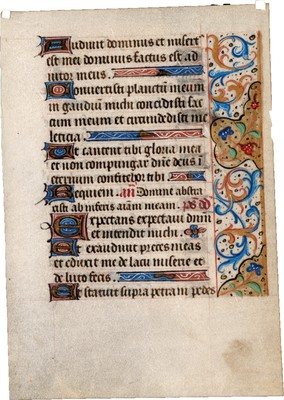 Audivit dominus et misert
est mei dominus factus est ad
iutor meus.
Convertisti planctum meum
in gaudium michi concidisti sac
cum meum et circundedisti me
leticia.
Ut cantent tibi gloria mea
et non compungar dne deus i
eternum confitebor tibi
Requiem. an Domine abstra
xisti ab inferis aiam meam. ps dd
Expectans expectavi dnm
et intendit michi
Et exaudivit preces meas
et eduxit me de lacu miserie et
de luto fecis.
Et statuit supra petram pedes